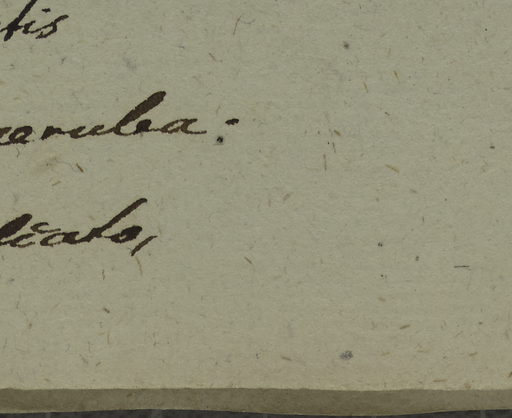 tis
aerulea.
licato,